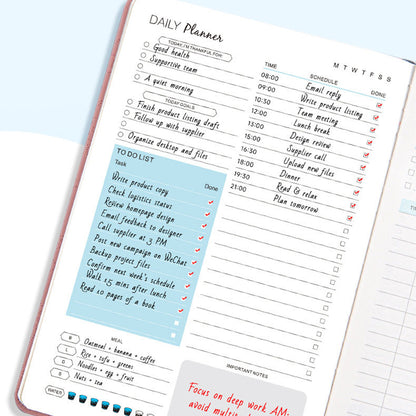 DAILY Planner
M T W T F S S
TODAY, I'M THANKFUL FOR:
Good health
Supportive team
A quiet morning
TODAY GOALS
Finish product listing draft
Follow up with supplier
Organize desktop and files
TO DO LIST
Task Done
Write product copy
Check logistics status
Review homepage design
Email feedback to designer
Call supplier at 3 PM
Post new campaign on WeChat
Backup project files
Confirm next week's schedule
Walk 15 mins after lunch
Read 10 pages of a book
MEAL
B Oatmeal + banana + coffee
L Rice + tofu + greens
D Noodles + egg + fruit
S Nuts + tea
WATER
TIME SCHEDULE DONE
08:00 Email reply
09:00 Write product listing
10:30 Team meeting
12:00 Lunch break
Design review
15:00 Supplier call
16:30 Upload new files
18:00 Dinner
19:30 Read & relax
21:00 Plan tomorrow
IMPORTANT NOTES
Focus on deep work AM;
avoid
TI